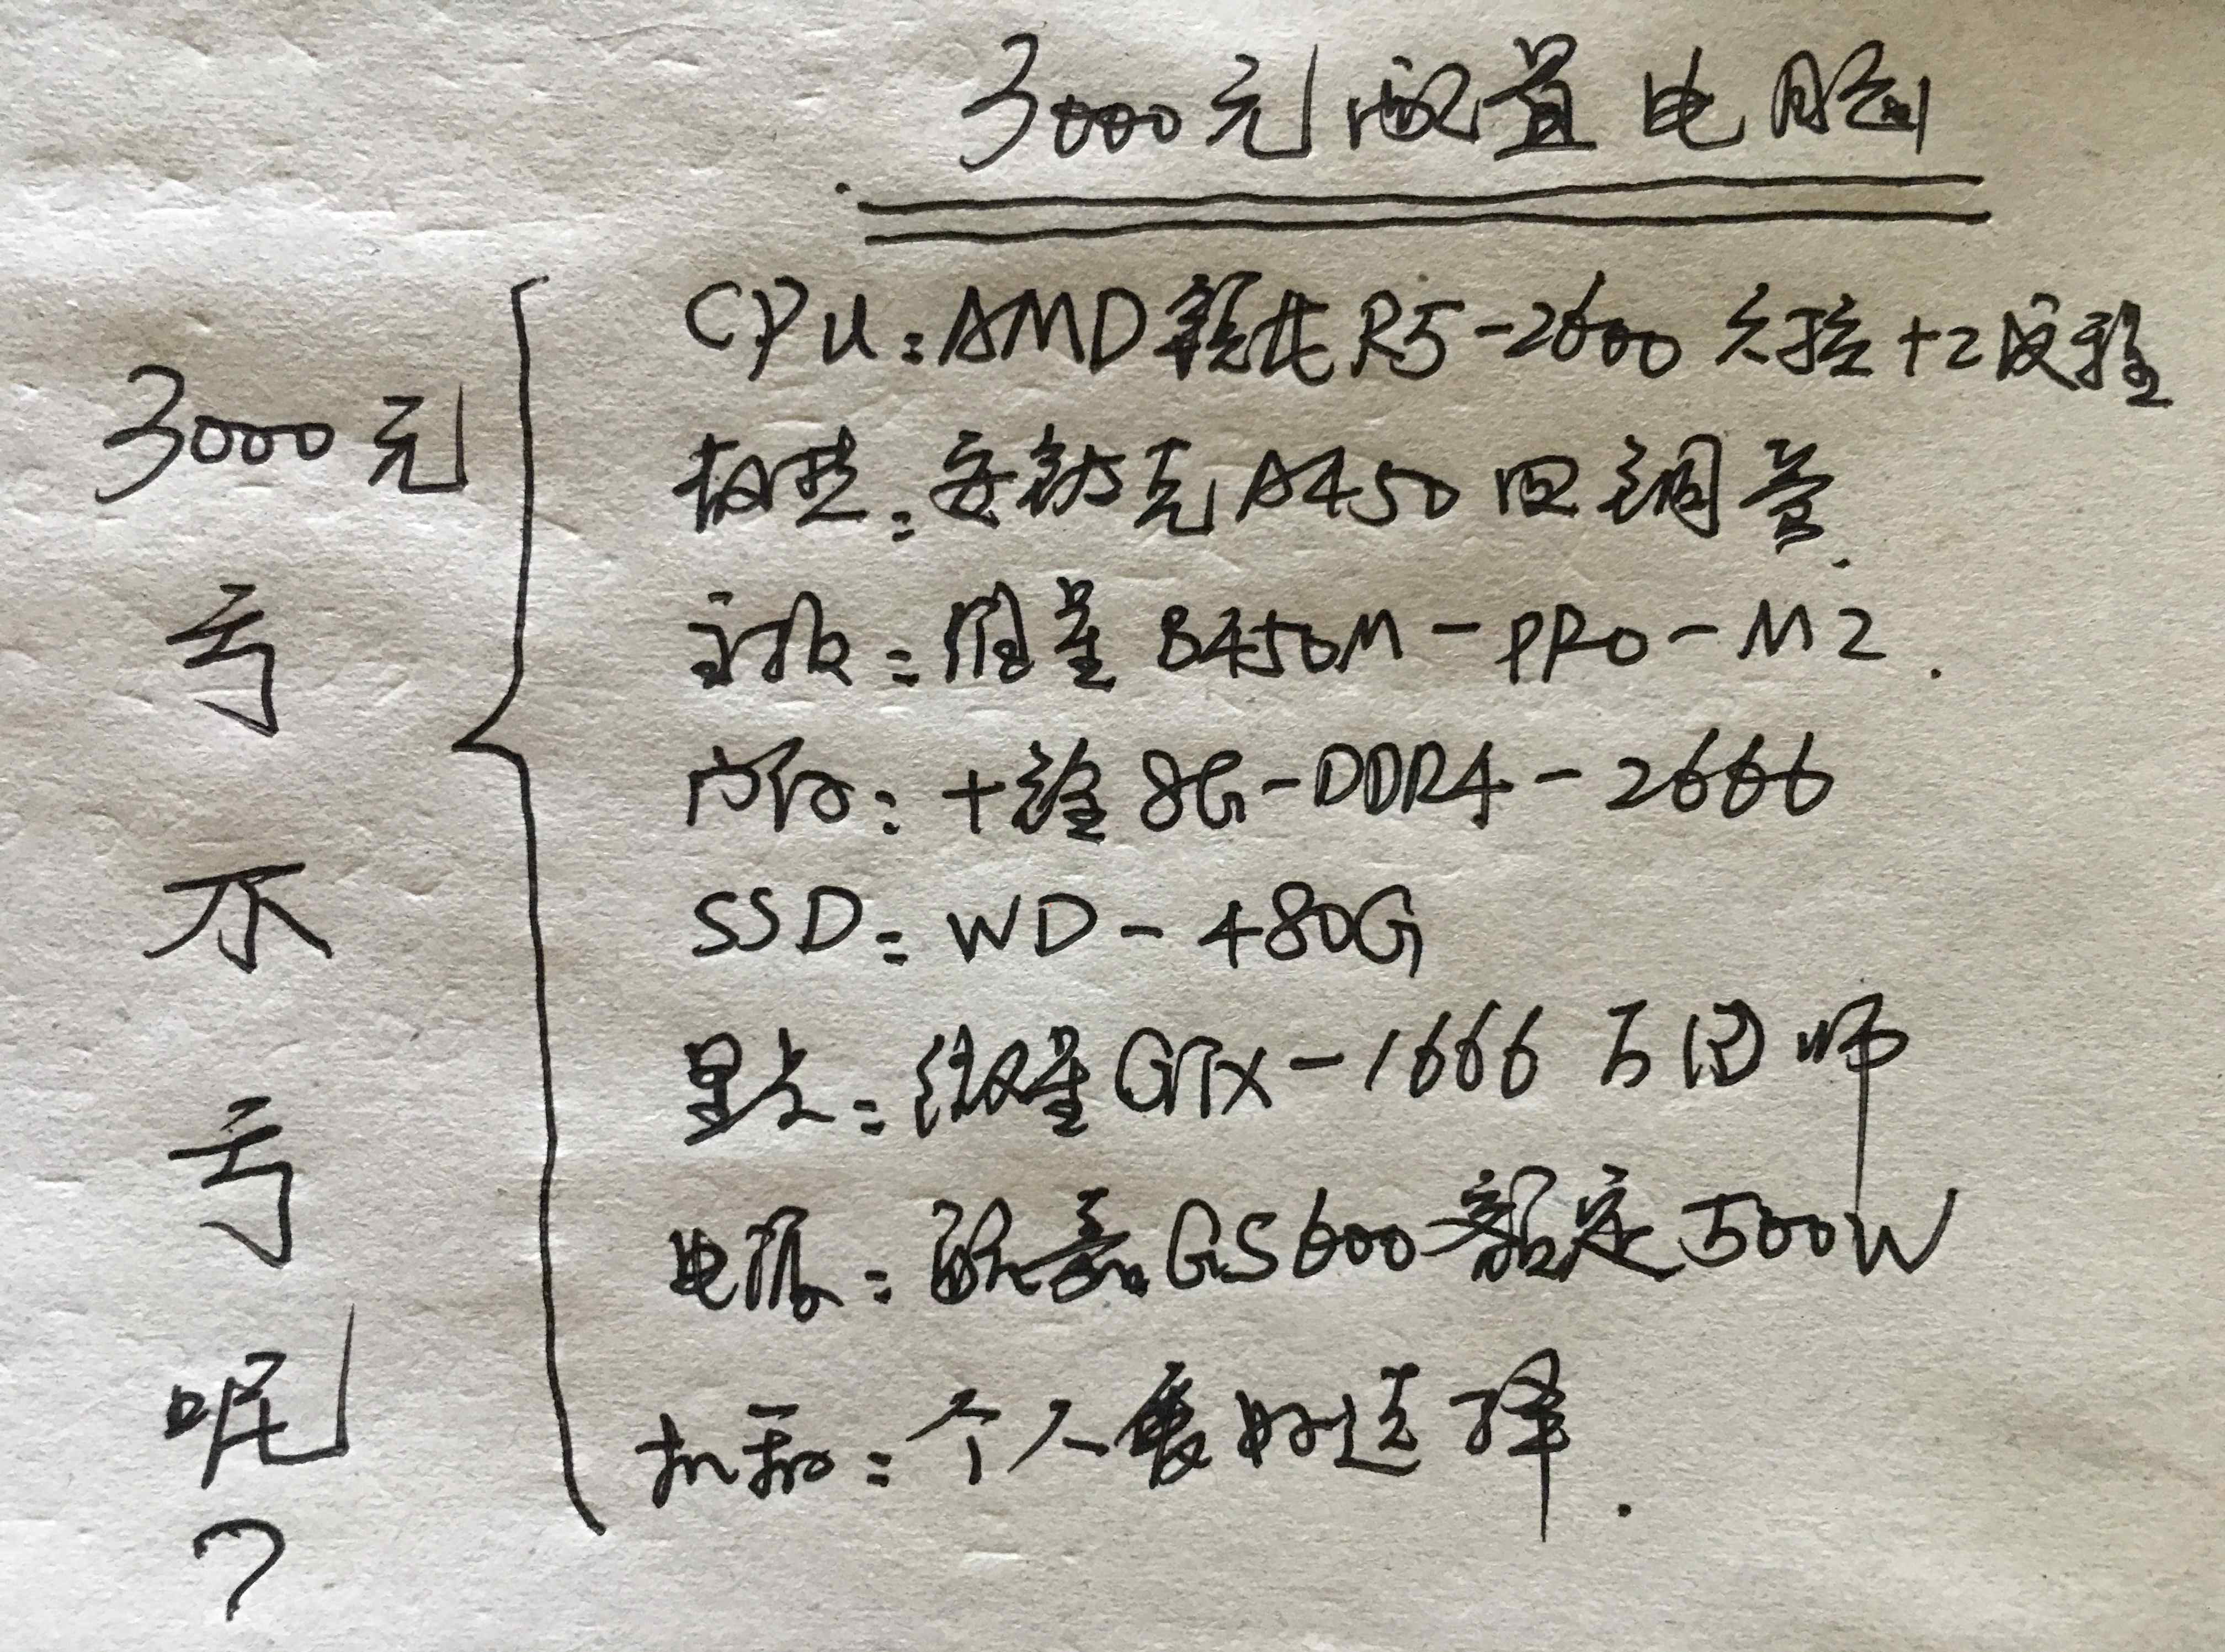 3000元配置电脑
3000元
亏
不
亏
呢
?
CPU:AMD锐龙R5-2600 六核+2线程
散热:安钛克A450四铜管.
主板:微星B450M-PRO-M2.
内存:十铨8G-DDR4-2666
SSD:WD-480G
显卡:微星GTX-1666万图师
电源:欧嘉GS600额定500W
机箱:个人爱好选择.